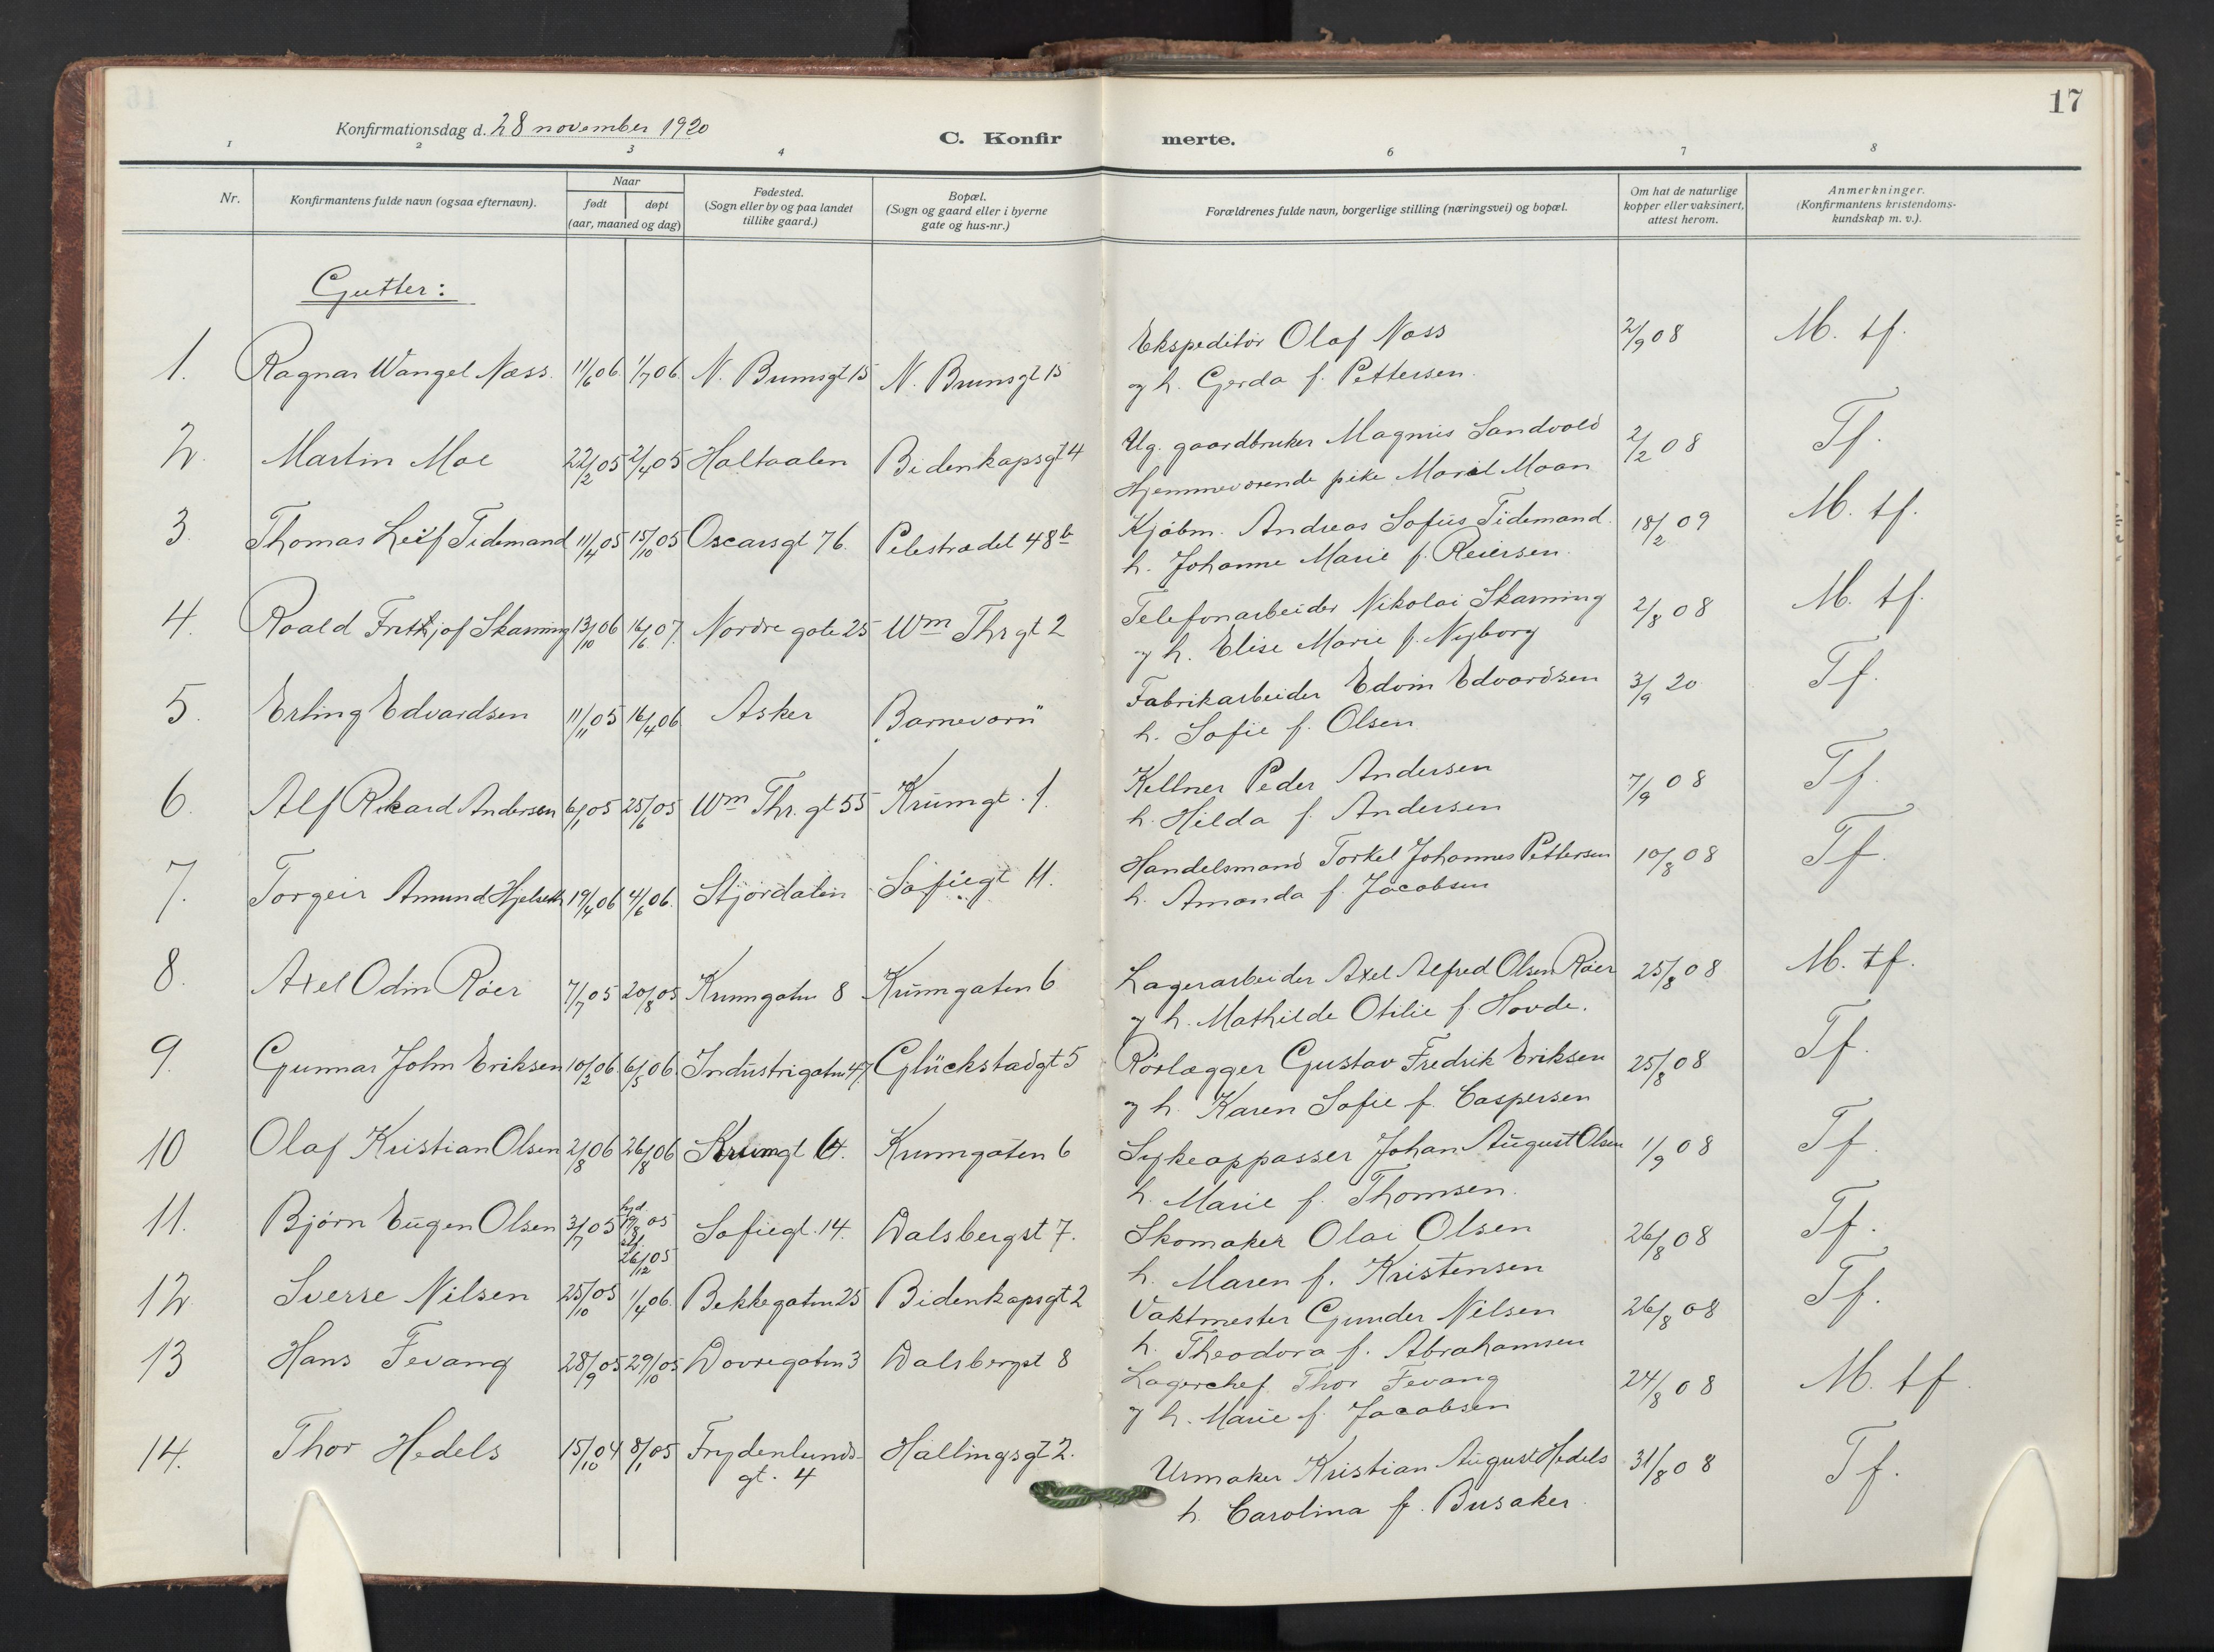 17
Konfirmationsdag d. 28 november 1920
C. Konfir merte.
1 2 3 4 6 7 8
Nr.
Konfirmantens fulde navn (ogsaa efternavn).
Naar
født døpt
(aar, maaned og dag)
Fødested.
(Sogn eller by og paa landet
tillike gaard.)
Bopæl.
(Sogn og gaard eller i byerne
gate og hus-nr.)
Forældrenes fulde navn, borgerlige stilling (næringsvei) og bopæl.
Om hat de naturlige
kopper eller vaksinert,
attest herom.
Anmerkninger.
(Konfirmantens kristendoms-
kundskap m. v.).
Gutter:
1. Ragnar Wangel Næss. 11/6 06. 1/7 06. N. Brunsgt 15 N. Brunsgt 15 Ekspeditør Olaf Næss 2/9 08 M. tf.
og h. Gerda f. Pettersen.
2. Martin Moe 22/2 05 2/4 05 Haltaalen Bidenkapsgt 4 Ug. gaardbruker Magnus Sandvold 2/2 08 Tf.
Hjemmeværende pike Marit Moan
3. Thomas Leif Tidemand 11/4 05 15/10 05 Oscarsgt 76. Pilestrædet 48b Kjøbm. Andreas Sofus Tidemand. 18/2 09 M. tf.
h. Johanne Marie f. Reiersen.
4. Roald Frithjof Skarning 13/10 06 16/6 07. Nordre gate 25 Wm Thr gt 2 Telefonarbeider Nikolai Skarning 2/8 08 M. tf.
og h. Elise Marie f. Nyborg
5. Erling Edvardsen 11/11 05 16/4 06 Asker "Barnevarn" Fabrikarbeider Edvin Edvardsen 3/9 20 Tf.
h. Sofie f. Olsen
6. Alf Rikard Andersen 6/1 05 25/6 05 Wm Thr. gt 55 Krumgt. 1. Kellner Peder Andersen 7/9 08 Tf.
h. Hilda f. Andersen
7. Torgeir Amund Hjelseth 19/4 06 4/6 06. Stjørdalen Sofiegt 11. Handelsmand Torkel Johannes Pettersen 10/8 08 Tf.
h. Amanda f. Jacobsen
8. Axel Odin Røer 7/7 05 20/8 05 Krumgaten 8 Krumgaten 6 Lagerarbeider Axel Alfred Olsen Røer 25/8 08 M. tf.
og h. Mathilde Otilie f. Hovde.
9. Gunnar John Eriksen 10/2 06. 6/5 06. Industrigaten 47 Glückstadgt 5 Rørlægger Gustav Fredrik Eriksen 25/8 08 Tf.
og h. Karen Sofie f. Caspersen
10 Olaf Kristian Olsen 2/8 06 26/8 06 Krumgt Krumgaten 6 Sykeoppasser Johan August Olsen 1/9 08 Tf.
h. Marie f. Thomsen.
11. Bjørn Eugen Olsen 3/7 05 hjd. 19/8 05 stf. 26/12 05 Sofiegt. 14. Dalsbergst 7. Skomaker Olai Olsen 26/8 08 Tf.
h. Maren f. Kristensen
12 Sverre Nilsen 25/10 05 1/4 06. Bekkegaten 25 Bidenkapsgt 2 Vaktmester Gunder Nilsen 26/8 08 Tf.
h. Theodora f. Abrahamsen
13 Hans Fevang 28/9 05 29/10 05 Dovregaten 3 Dalsbergst 8 Lagerchef Thor Fevang 24/8 08 M. tf.
og h. Marie f. Jacobsen
14. Thor Hedels 15/10 04 8/1 05 Frydenlunds- Hallingsgt 2. Urmaker Kristian August Hedels 31/8 08 Tf.
gt. 4 h. Carolina f. Busaker.